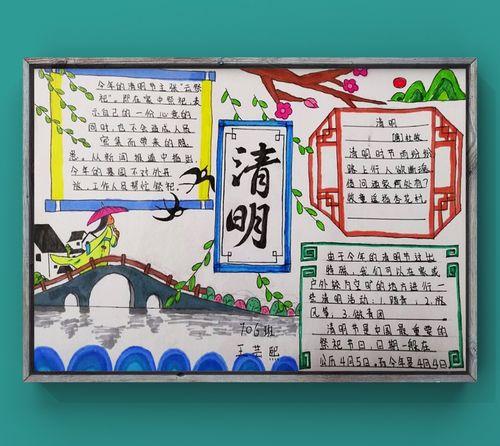 今年的清明节主张"云祭
祀"。即在家中祭祀,表
示自己的一份心意的
同时,也不会造成人员
密集而带来的隐
患。从新闻报道中指出
今年的墓园不对外开
放,工作人员帮忙祭祀.
清明
清明
[唐]杜牧
清明时节雨纷纷
路上行人欲断魂
借问酒家何处有?
牧童遥指杏花村
由于今年的清明节过出
特殊,我们可以在家或
户外较为空旷的地方进行一
些清明活动:1.踏青,2.放
风筝,3.做青团
清明节是中国最重要的
祭祀节日,日期一般在
公历4月5日,而今年是4月4日
706班
王芸熙